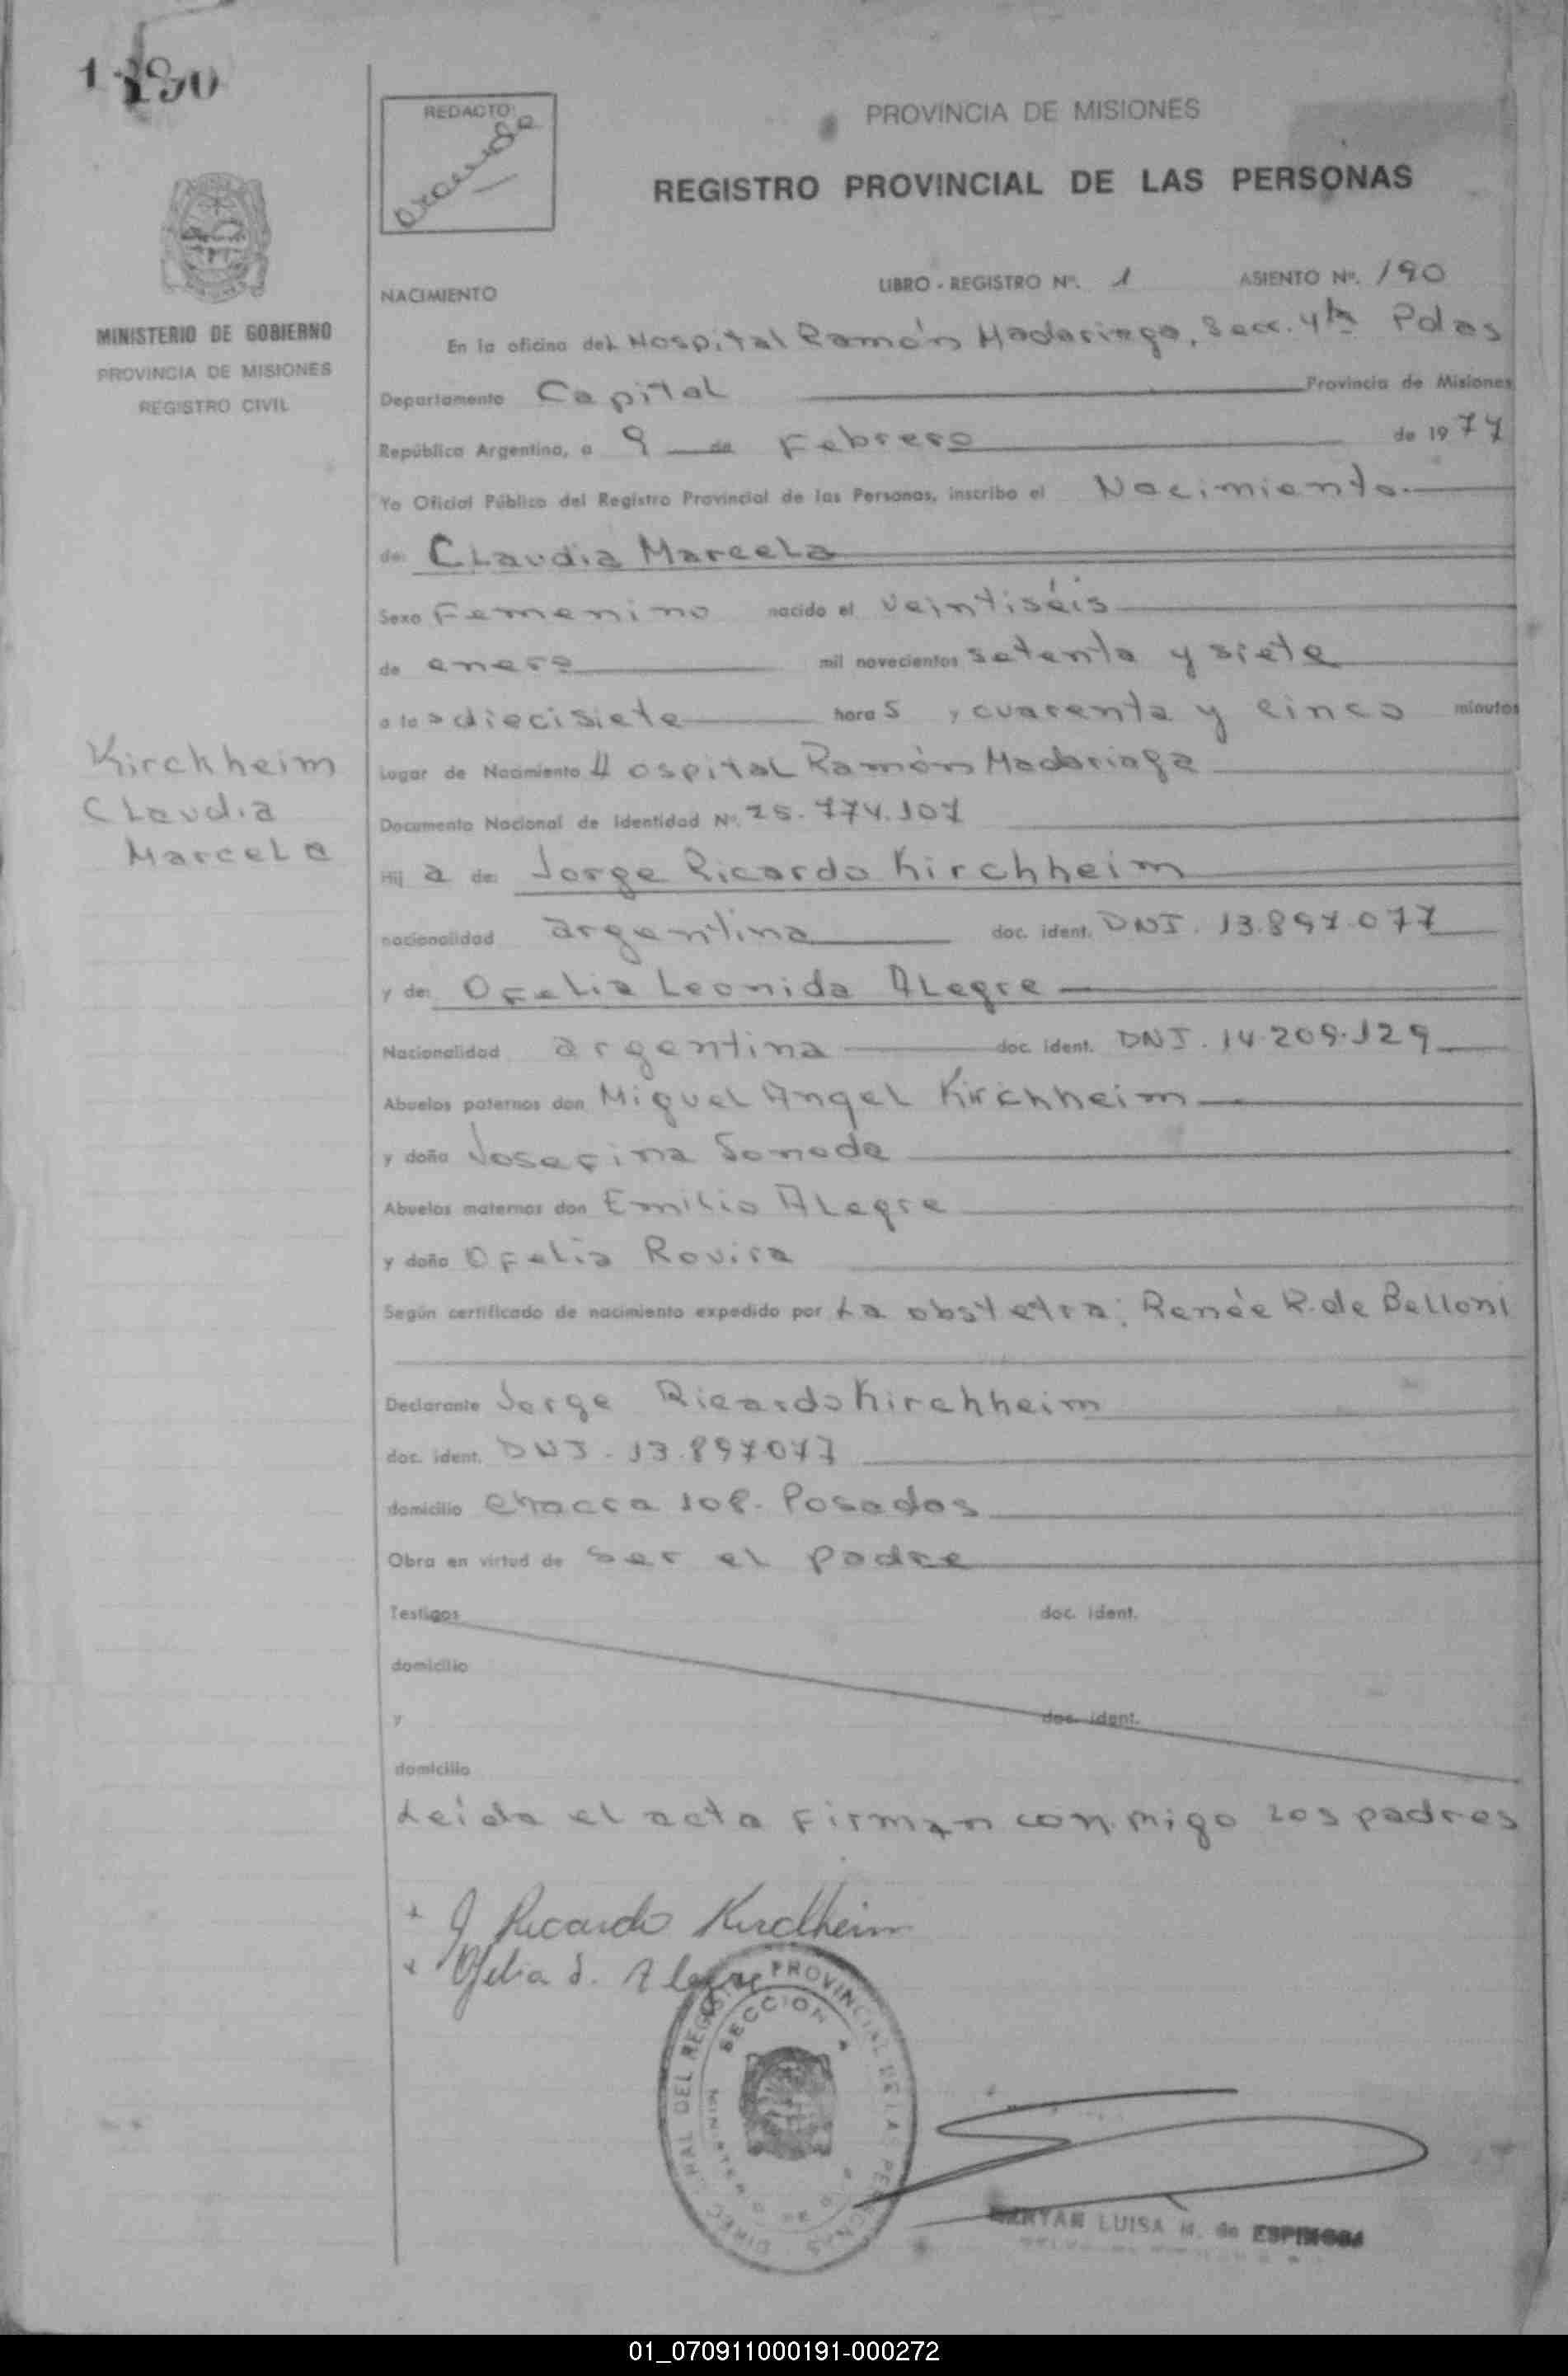 190
REDACTO:
PROVINCIA DE MISIONES
REGISTRO PROVINCIAL DE LAS PERSONAS
MINISTERIO DE GOBIERNO
PROVINCIA DE MISIONES
REGISTRO CIVIL
NACIMIENTO LIBRO - REGISTRO Nº. 1 ASIENTO Nº. 190
En la oficina del Hospital Ramón Madariaga, Secc. 4ta Pdas
Departamento Capital Provincia de Misiones
República Argentina, a 9 de Febrero de 1977
Yo Oficial Público del Registro Provincial de las Personas, inscribo el Nacimiento.
de: Claudia Marcela
Sexo Femenino nacido el veintiséis
de enero mil novecientos setenta y siete
a las diecisiete horas y cuarenta y cinco minutos
Kirchheim
Claudia
Marcela
Lugar de Nacimiento Hospital Ramón Madariaga
Documento Nacional de Identidad Nº. 25.774.107
Hij a de: Jorge Ricardo Kirchheim
nacionalidad argentina doc. ident. DNI. 13.897.077
y de: Ofelia Leonida Alegre
Nacionalidad argentina doc. ident. DNI. 14.209.129
Abuelos paternos don Miguel Angel Kirchheim
y doña Josefina Sonoda
Abuelos maternos don Emilio Alegre
y doña Ofelia Rovira
Según certificado de nacimiento expedido por La obstetra: Renée R. de Belloni
Declarante Jorge Ricardo Kirchheim
doc. ident. DNI - 13.897077
domicilio Chacra 108. Posadas
Obra en virtud de ser el padre
Testigos doc. ident.
domicilio
y doc. ident.
domicilio
Leída el acta firman conmigo los padres
+ J Ricardo Kirchheim
+ Ofelia L. Alegre
DEL REGISTRO PROVINCIAL DE LAS PERSONAS
SECCION
LUISA M. de ESPINOSA
01_070911000191-000272